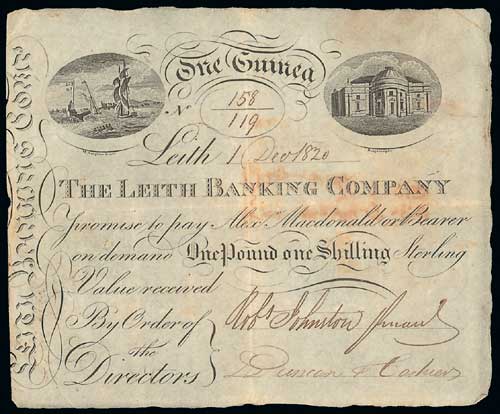 LEITH BANKING COMY
One Guinea
No 158
119
Leith 1 Dec 1820
THE LEITH BANKING COMPANY
promise to pay Alexr Macdonald or Bearer
on demand One Pound one Shilling Sterling
Value received
By Order of
the
Directors
Robt Johnston
Duncan
Cashier